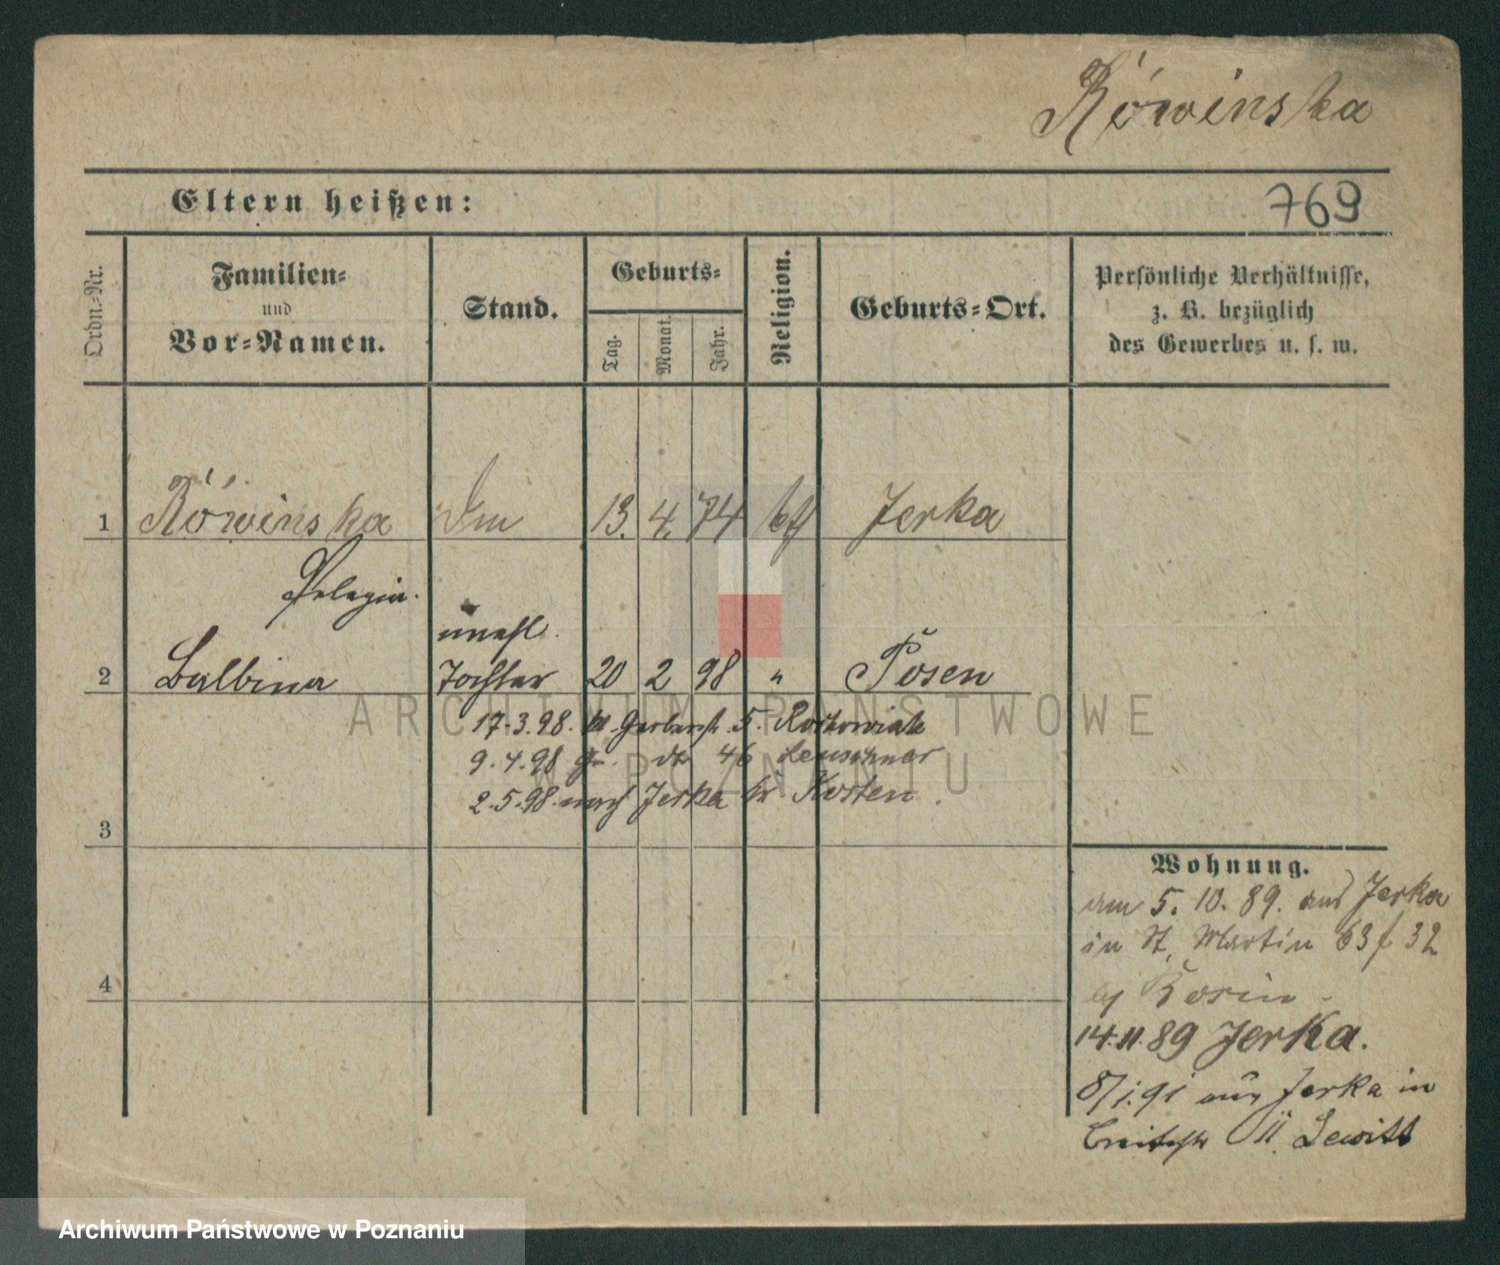 Rówinska
Eltern heißen:
769
Ordn.-Nr.
Familien-
und
Vor-Namen.
Stand.
Geburts-
Tag.
Monat.
Jahr.
Religion.
Geburts-Ort.
Persönliche Verhältnisse,
z. B. bezüglich
des Gewerbes u. s. w.
1 Rówinska 13. 4. 74 Jerka
Pelagia.
unehl.
2 Balbina Tochter 20 2 98 " Posen
ARCHIWUM PAŃSTWOWE
17.3.98. Gerberstr. 5.
W POZNANIU
9.4.98 46 Leuschner
2.5.98. nach Jerka Kr Kosten.
3
Wohnung.
am 5. 10. 89. aus Jerka
in St. Martin 63 32
4
14.11.89 Jerka.
8/1.91 aus Jerka in
Breitestr 11. Lewitt
Archiwum Państwowe w Poznaniu